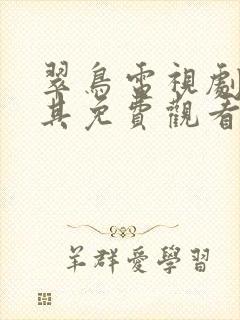 翠鳥電視劇
其免費觀看
羊群愛學習